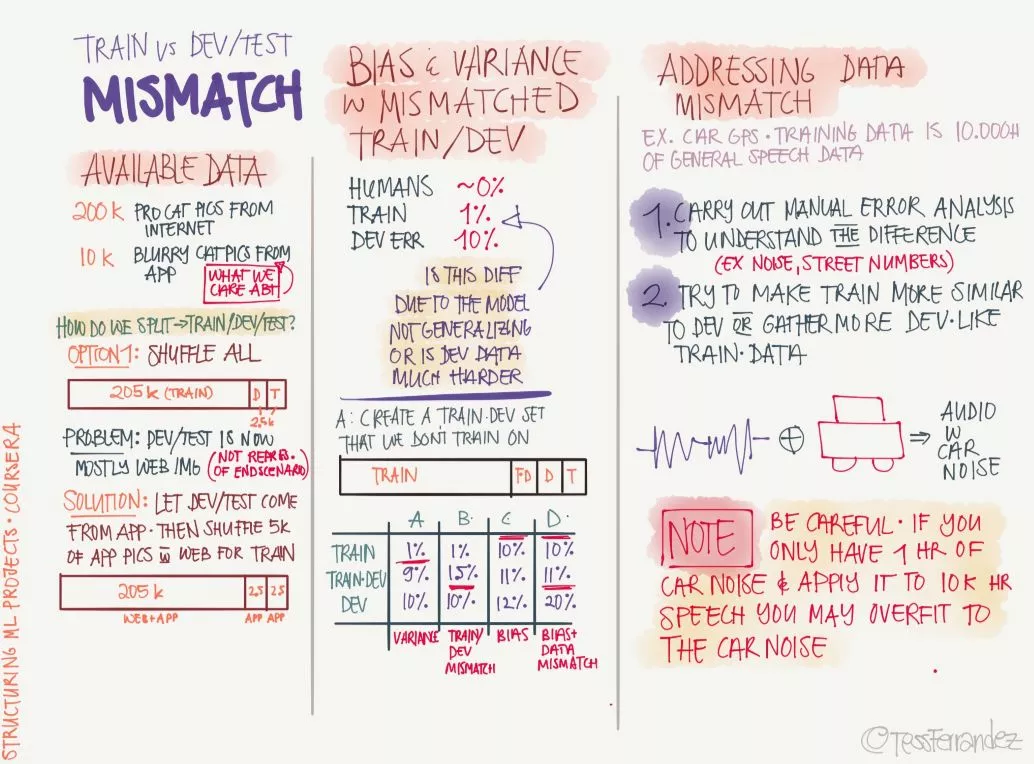 TRAIN VS DEV/TEST
MISMATCH
AVAILABLE DATA
200 k PRO CAT PICS FROM
INTERNET
10 k BLURRY CAT PICS FROM
APP
WHAT WE
CARE ABT
HOW DO WE SPLIT → TRAIN/DEV/TEST?
OPTION 1: SHUFFLE ALL
205 k (TRAIN) D T
2.5k
PROBLEM: DEV/TEST IS NOW
MOSTLY WEB IMG (NOT REPRES.
OF END SCENARIO)
SOLUTION: LET DEV/TEST COME
FROM APP · THEN SHUFFLE 5K
OF APP PICS W WEB FOR TRAIN
205 k 2.5 2.5
WEB+APP APP APP
BIAS & VARIANCE
W MISMATCHED
TRAIN/DEV
HUMANS ~0%
TRAIN 1%
DEV ERR 10%
IS THIS DIFF
DUE TO THE MODEL
NOT GENERALIZING
OR IS DEV DATA
MUCH HARDER
A: CREATE A TRAIN·DEV SET
THAT WE DON'T TRAIN ON
TRAIN TD D T
A B C D
TRAIN 1% 1% 10% 10%
TRAIN·DEV 9% 15% 11% 11%
DEV 10% 10% 12% 20%
VARIANCE TRAIN/ BIAS BIAS+
DEV DATA
MISMATCH MISMATCH
ADDRESSING DATA
MISMATCH
EX. CAR GPS · TRAINING DATA IS 10.000H
OF GENERAL SPEECH DATA
1. CARRY OUT MANUAL ERROR ANALYSIS
TO UNDERSTAND THE DIFFERENCE
(EX NOISE, STREET NUMBERS)
2. TRY TO MAKE TRAIN MORE SIMILAR
TO DEV OR GATHER MORE DEV·LIKE
TRAIN·DATA
AUDIO
W
CAR
NOISE
NOTE BE CAREFUL · IF YOU
ONLY HAVE 1 HR OF
CAR NOISE & APPLY IT TO 10K HR
SPEECH YOU MAY OVERFIT TO
THE CAR NOISE
STRUCTURING ML PROJECTS · COURSERA
@TessFerrandez